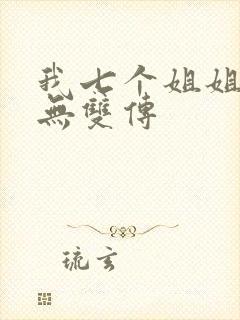 我七个姐姐
無雙傳
琉玄